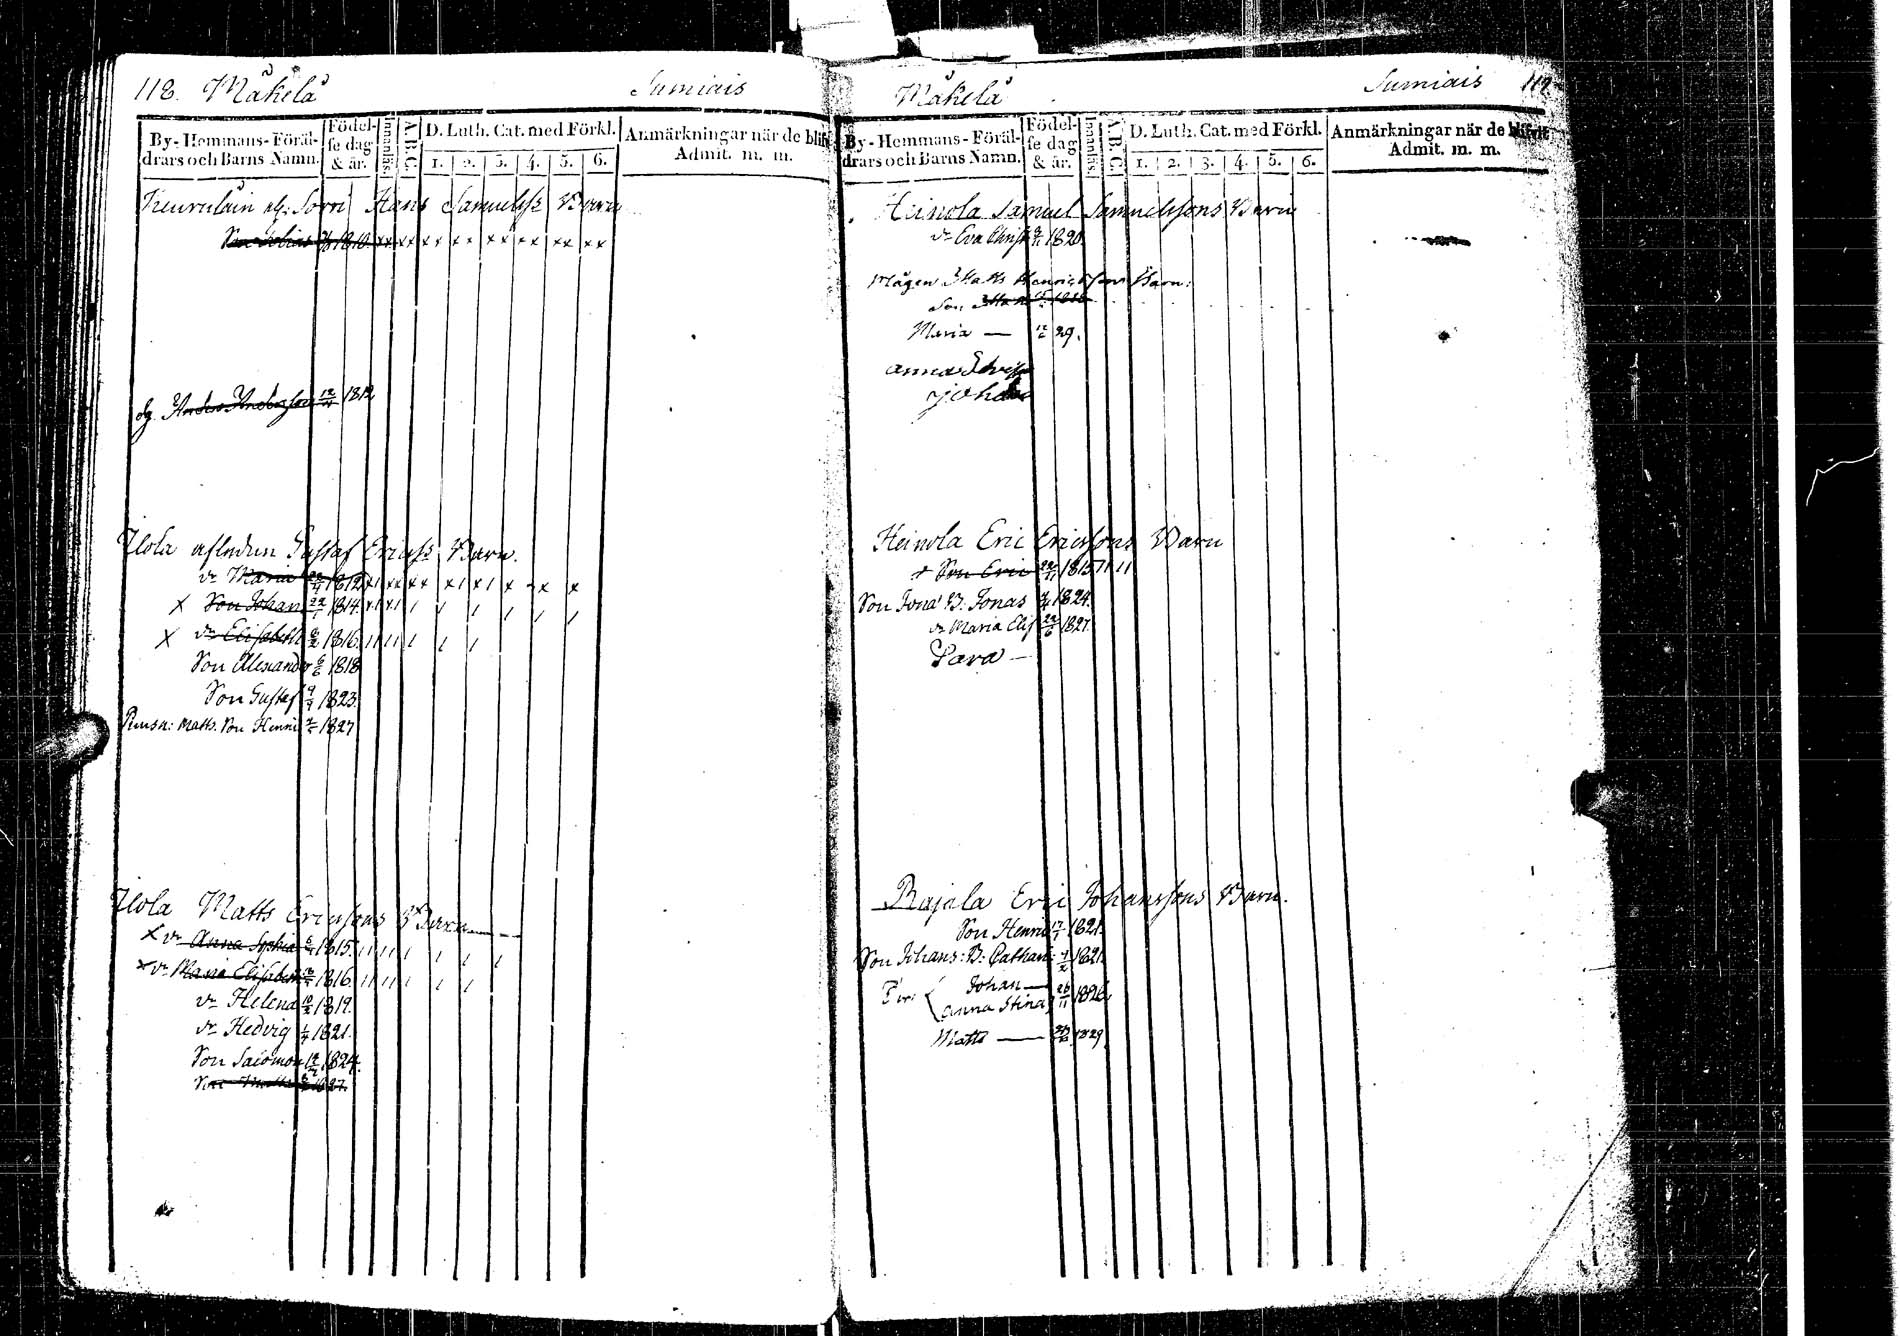 118. Mäkelä Sumiais
By-Hemmans-Föräl-drars och Barns Namn. Födel-se dag & år. Innanläs. A.B.C. D. Luth. Cat. med Förkl. 1. 2. 3. 4. 5. 6. Anmärkningar när de blifv Admit. m. m.
Sorri Hans Samuelss Barn
1810. xx xx xx xx xx xx xx xx
Anders Andersson 12 1812
Ilola afledne Gustaf Ericss. Barn.
dr Maria 1812
x Son Johan 22 1814.
x dr Elisabeth 1816.
Son Alexander 6/6 1818
Son Gustaf 1823.
Matts. Son Henric 1827
Ilola Matts Ericssons Barn
x dr Anna Sophia 1815.
x dr Maria Elisabeth 1816.
dr Helena 1819.
dr Hedvig 1/4 1821.
Son Salomon 1824.
Son Matts 1827.
Mäkelä Sumiais 119.
By-Hemmans-Föräl-drars och Barns Namn. Födel-se dag & år. Innanläs. A.B.C. D. Luth. Cat. med Förkl. 1. 2. 3. 4. 5. 6. Anmärkningar när de blifvit Admit. m. m.
Heinola Samuel Samuelssons Barn
dr Eva Christ 1820.
Mågen Matts Henricsson Barn:
Son
Maria — 29.
Anna
Johan
Heinola Eric Ericssons Barn
+ Son Eric 22/11 1815
Son Jona B. Jonas 1824.
dr Maria Elis 22/6 1827.
Sara —
Rajala Eric Johanssons Barn.
Son Henric 17/1 1821.
Son Johans: B: Cathari 1821.
Johan —
Anna Stina 26/11 1826.
Matts — 1829